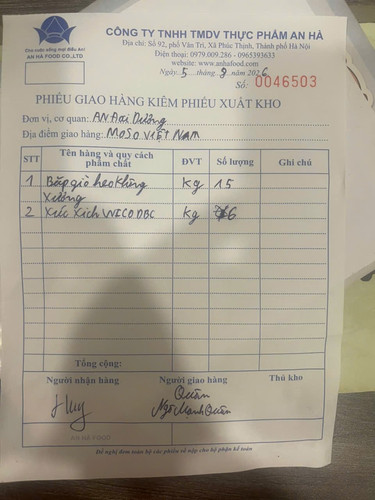 CÔNG TY TNHH TMDV THỰC PHẨM AN HÀ
Địa chỉ: Số 92, phố Văn Trì, Xã Phúc Thịnh, Thành phố Hà Nội
Điện thoại: 0979.009.286 - 0965393633
website: www.anhafood.com
Cho cuộc sống trọn điều An!
AN HÀ FOOD CO.,LTD
Ngày 5 tháng 9 năm 2026
Số: 0046503
PHIẾU GIAO HÀNG KIÊM PHIẾU XUẤT KHO
Đơn vị, cơ quan: AN Đại Dương
Địa điểm giao hàng: MOSO VIỆT NAM
STT Tên hàng và quy cách phẩm chất ĐVT Số lượng Ghi chú
1 Bắp giò heo không xương kg 15
2 Xúc Xích VICO DBC kg 6
Tổng cộng:
Người nhận hàng Người giao hàng Thủ kho
Huy Quân
Ngô Mạnh Quân
AN HÀ FOOD
Đề nghị đem toàn bộ các phiếu về nộp cho bộ phận kế toán